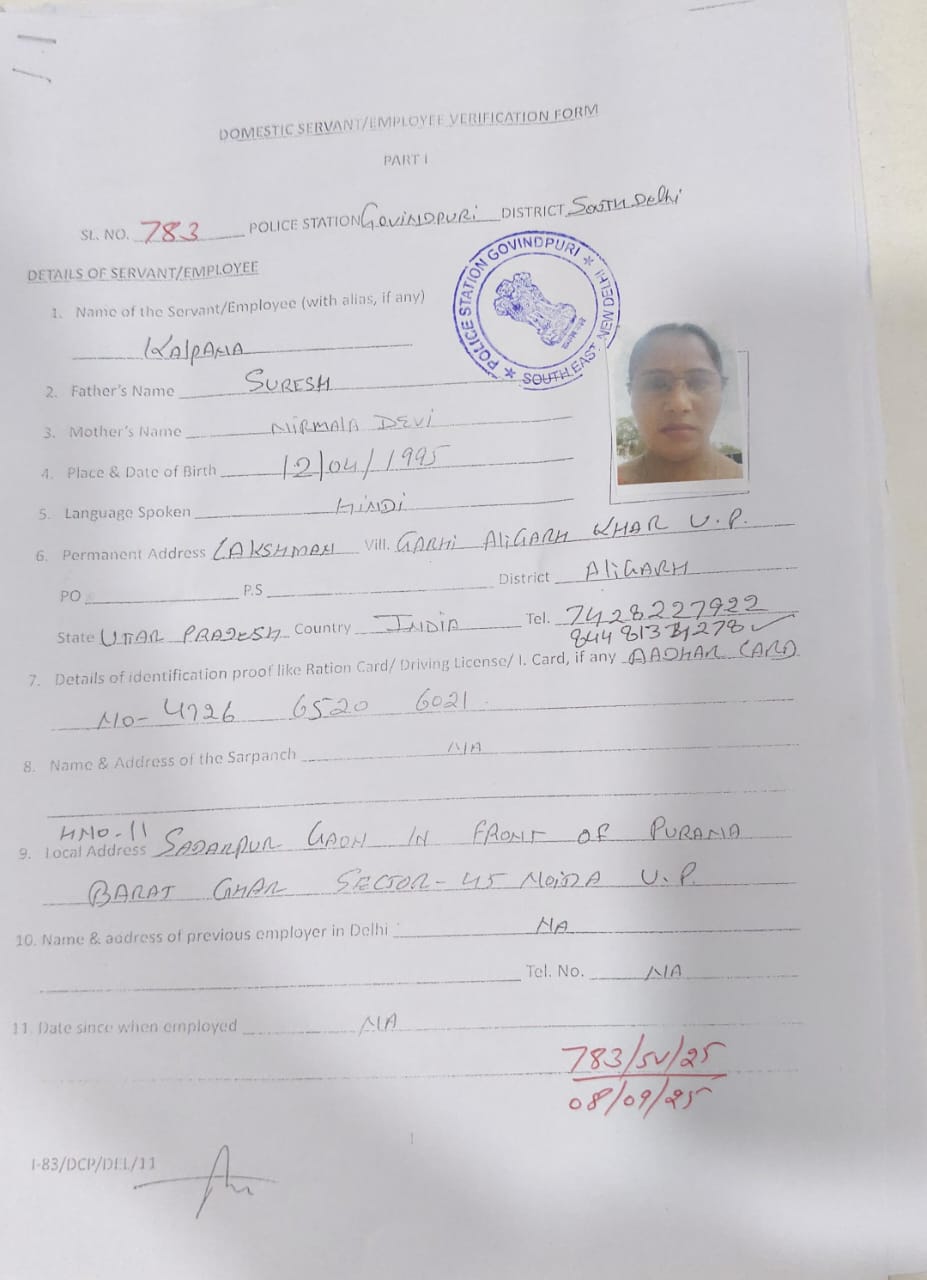 DOMESTIC SERVANT/EMPLOYEE VERIFICATION FORM
PART I
SL. NO. 783 POLICE STATION GOVINDPURI DISTRICT SOUTH Delhi
DETAILS OF SERVANT/EMPLOYEE
POLICE STATION GOVINDPURI ★ SOUTH EAST, NEW DELHI ★
1. Name of the Servant/Employee (with alias, if any)
KALPANA
2. Father's Name SURESH
3. Mother's Name NIRMALA DEVI
4. Place & Date of Birth 12/04/1995
5. Language Spoken HINDI
6. Permanent Address LAKSHMAN Vill. GARHI ALIGARH KHAR U.P.
PO P.S District ALIGARH
State UTTAR PRADESH Country INDIA Tel. 7428227922
7. Details of identification proof like Ration Card/ Driving License/ I. Card, if any AADHAR CARD
NO- 4726 6520 6021
8. Name & Address of the Sarpanch N/A
HNO-11
9. Local Address SADARPUR GAON IN FRONT OF PURANA
BARAT GHAR SECTOR-45 NOIDA U.P.
10. Name & address of previous employer in Delhi NA
Tel. No. N/A
11. Date since when employed NA
783/SV/25
08/09/25
1
I-83/DCP/DEL/11